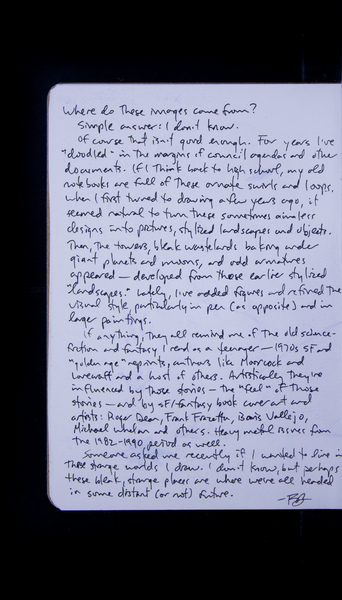 Where do these images come from?
Simple answer: I don't know.
Of course that isn't good enough. For years I've
"doodled" in the margins of council agendas and other
documents. If I think back to high school, my old
notebooks are full of these ornate swirls and loops.
When I first turned to drawing a few years ago, it
seemed natural to turn these sometimes aimless
designs into pictures, stylized landscapes and objects.
Then, the towers, bleak wastelands baking under
giant planets and moons, and odd armatures
appeared — developed from those earlier stylized
"landscapes." Lately, I've added figures and refined the
visual style, particularly in pen (as opposite) and in
larger paintings.
If anything, they all remind me of the old science-
fiction and fantasy I read as a teenager — 1970s SF and
"golden age" reprints, authors like Moorcock and
Lovecraft and a host of others. Artistically they're
influenced by those stories — the "feel" of those
stories — and by SF/fantasy book cover art and
artists: Roger Dean, Frank Frazetta, Boris Vallejo,
Michael Whelan and others. Heavy Metal issues from
the 1982-1990 period as well.
Someone asked me recently if I wanted to live in
these strange worlds I draw. I don't know, but perhaps
these bleak, strange places are where we're all headed
in some distant (or not) future.